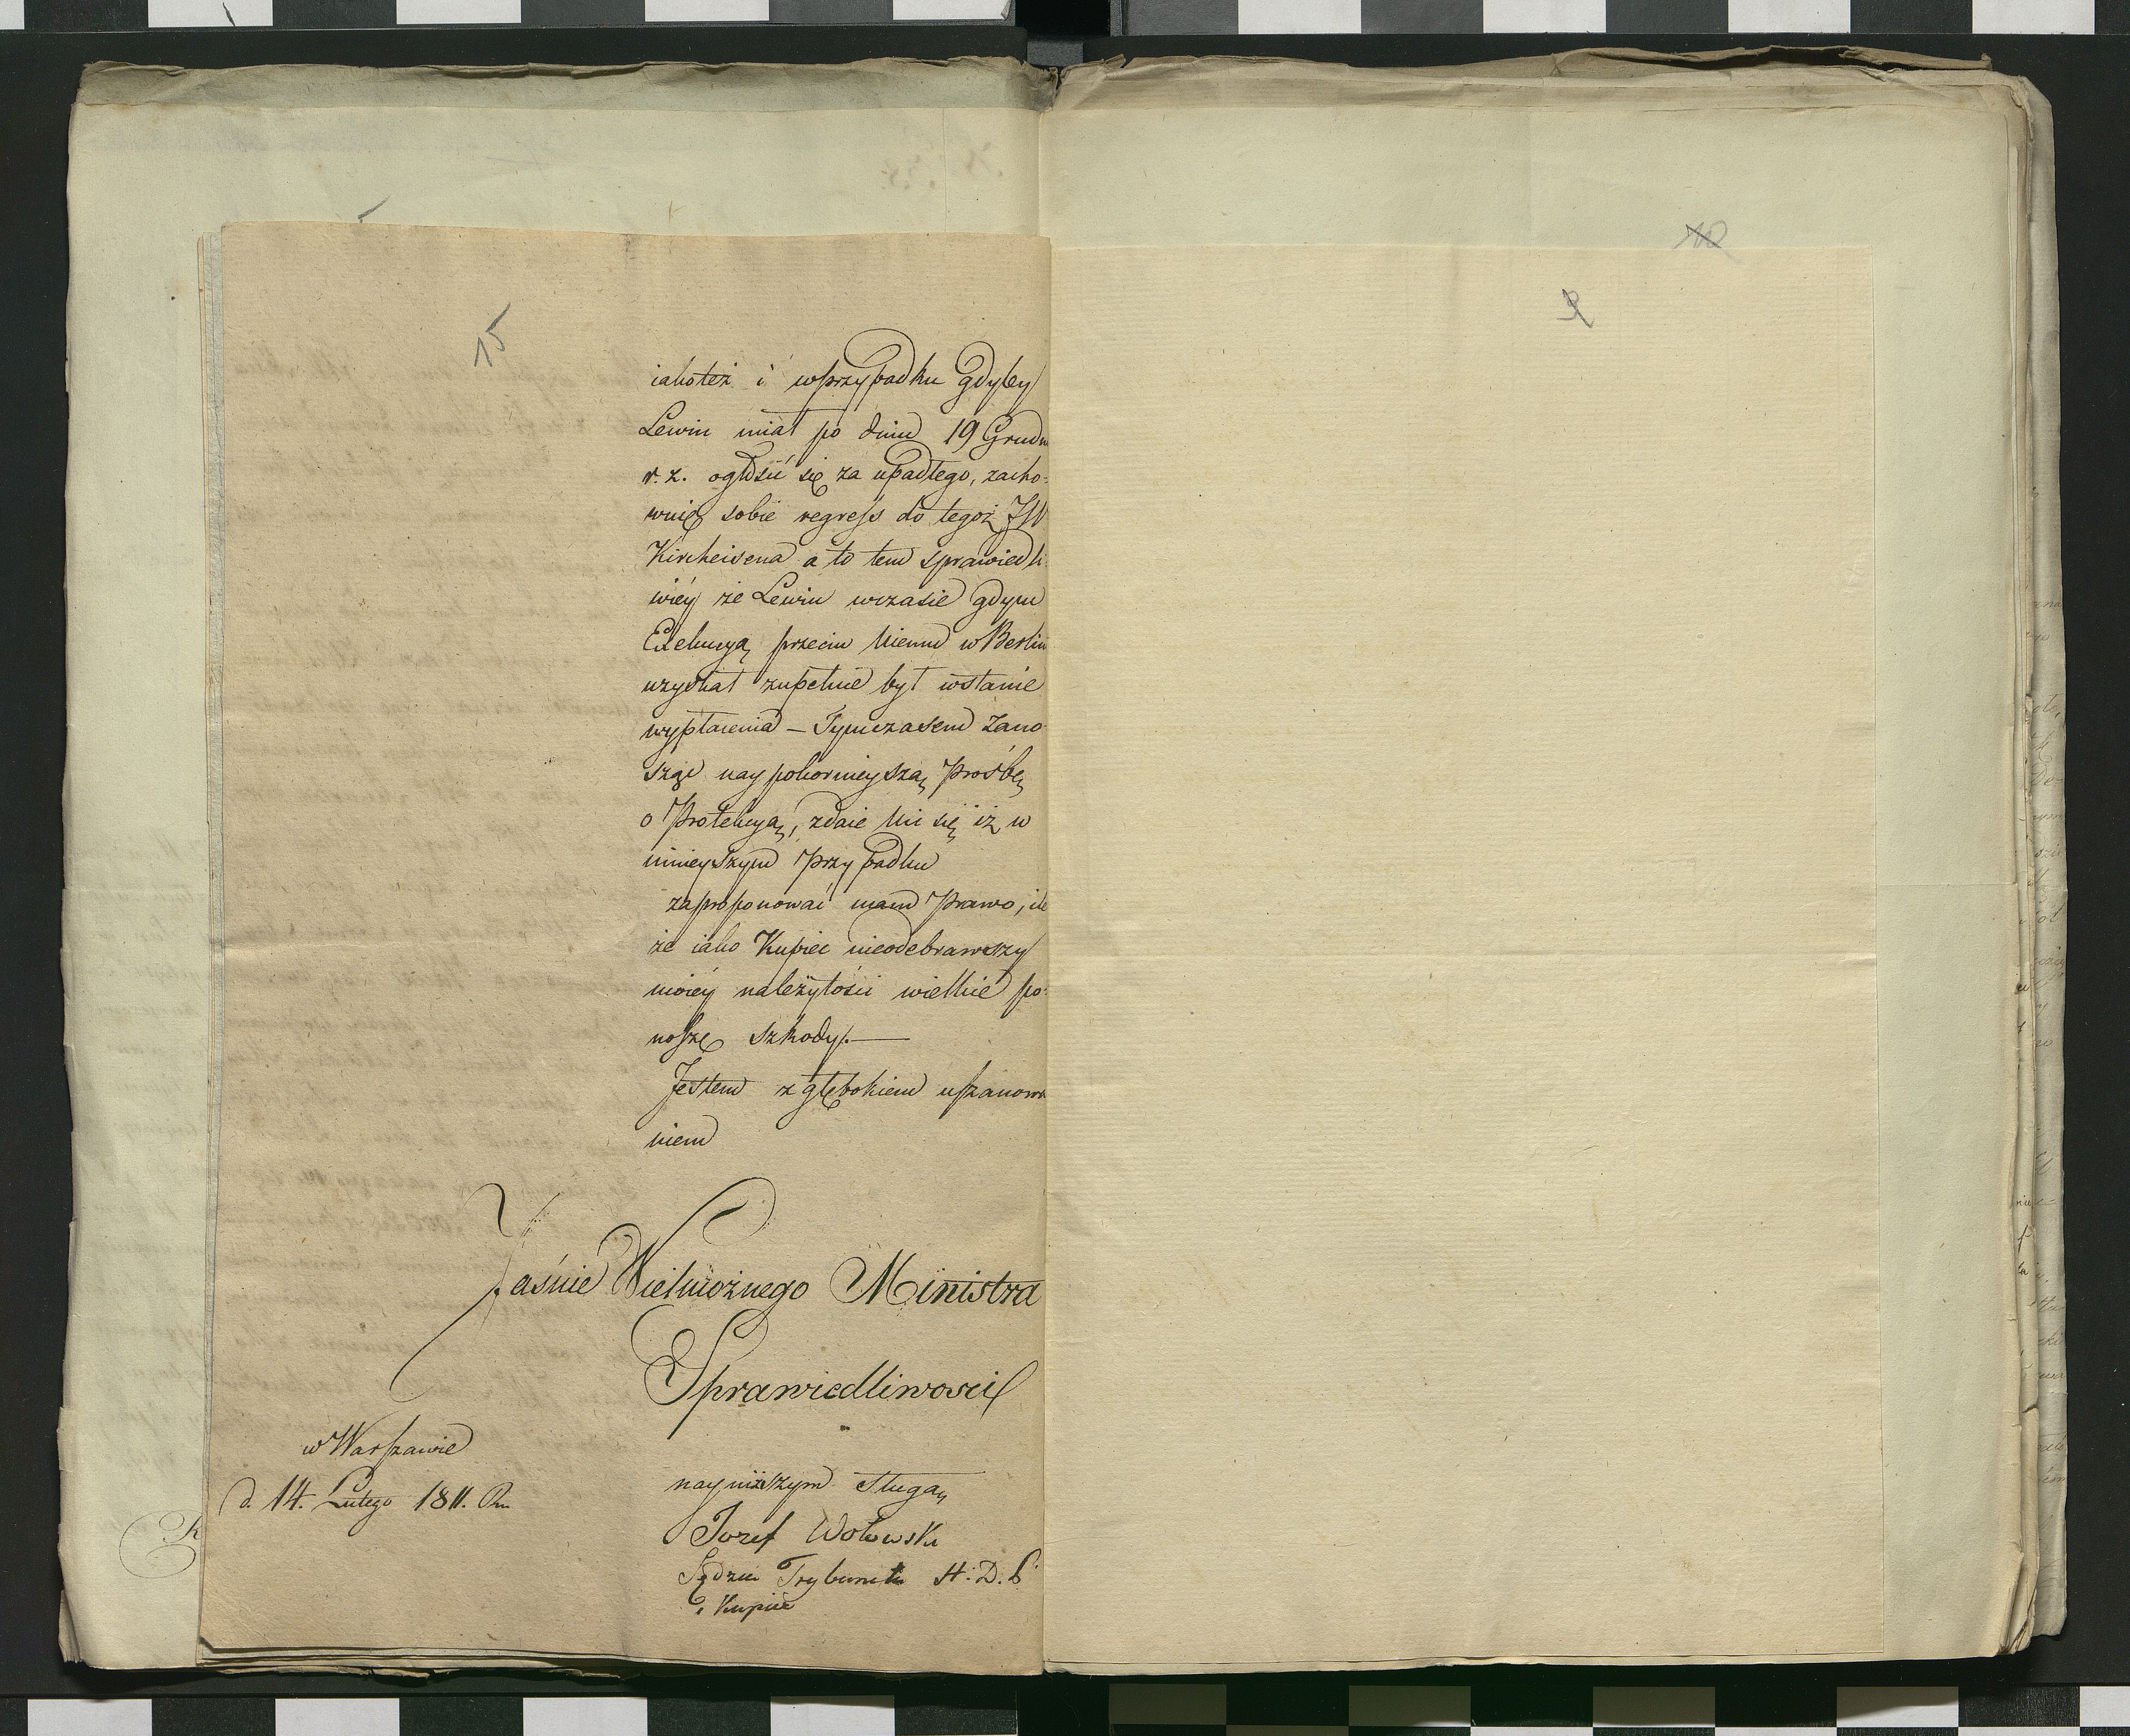 15
iakoteż i w przypadku gdyby
Lewin miał po dniu 19 Grudn
r. z. ogłosić się za upadłego, zacho-
wuię sobie regress do tegoż JW
Kircheisena a to tem sprawiedli-
wiéy że Lewin w czasie gdym
Exekucyą przeciw Niemu w Berlin
uzyskał zupełnie był w stanie
wypłacenia – Tymczasem zano-
szę naypokornieyszą Prośbę
o Protekcyą, zdaie Mi się iż w
ninieyszym Przypadku
zaproponować mam Prawo, ile
że iako Kupiec nieodebrawszy
moiéy należytości wielkie po-
noszę szkody. —
Jestem z głębokiem uszanowa
niem
Jaśnie Wielmożnego Ministra
Sprawiedliwości
w Warszawie
d. 14. Lutego 1811. R.
nayniższym sługą
Jozef Wołowski
Sędzia Trybunału H. D. P
i Kupiec
10
9